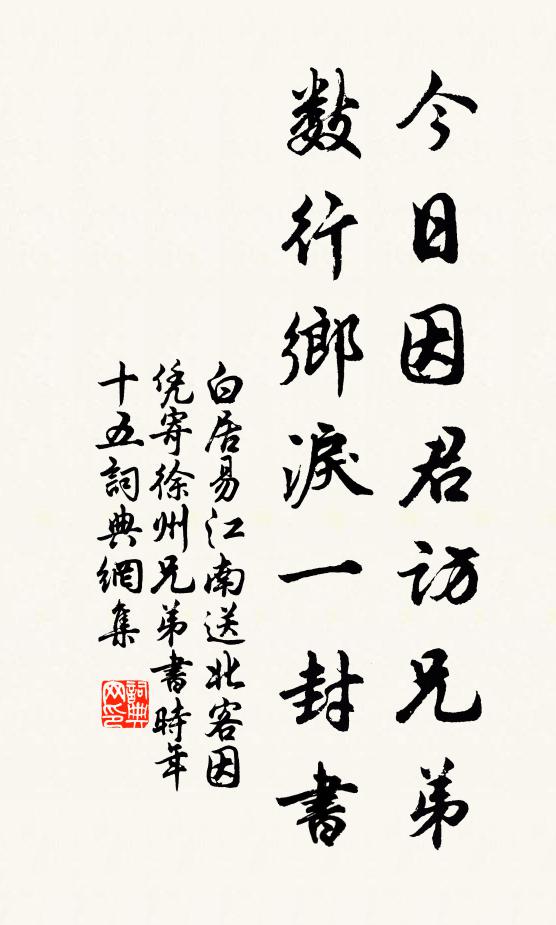 今日因君访兄弟
数行鄉淚一封書
白居易江南送北客因
凭寄徐州兄弟書時年
十五詞典網集
詞典网印